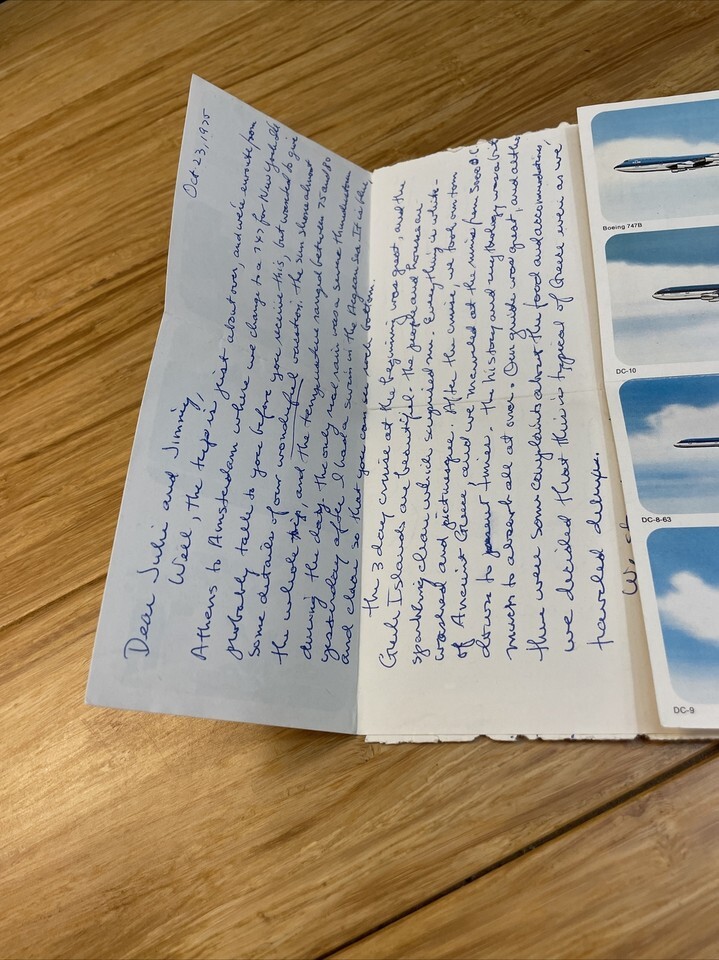 Oct 23, 1975
Dear Julie and Jimmy,
Well, the trip is just about over, and we're enroute from
Athens to Amsterdam where we change to a 747 for New York. I'll
probably talk to you before you receive this, but wanted to give
some details of our wonderful vacation. The sun shone almost
the whole trip, and the temperature ranged between 75 and 80
during the day. The only real rain was a severe thunderstorm
yesterday after I had a swim in the Aegean sea. It is blue,
and clear so that you can see rock bottom.
The 3 day cruise at the beginning was great, and the
Greek Islands are beautiful. The people and houses are
sparkling clean which surprised me. Everything is white-
washed and picturesque. After the cruise, we took our tour
of Ancient Greece and we marveled at the ruins from 5000 B.C.
down to present times. The history and mythology was a bit
much to absorb all at over. Our guide was great, and altho
there were some complaints about the food and accommodations,
we decided that this is typical of Greece even as we
traveled deluxe.
Boeing 747B
DC-10
DC-8-63
DC-9